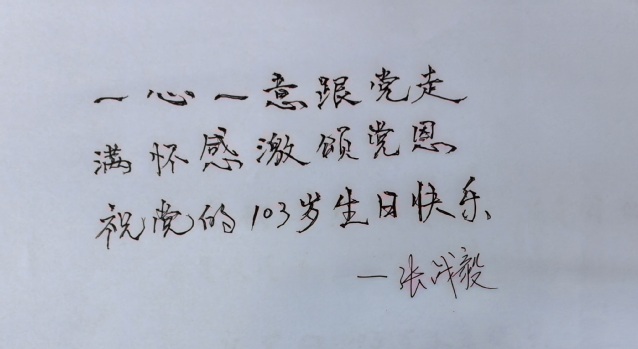 一心一意跟党走
满怀感激颂党恩
祝党的103岁生日快乐
一张战毅